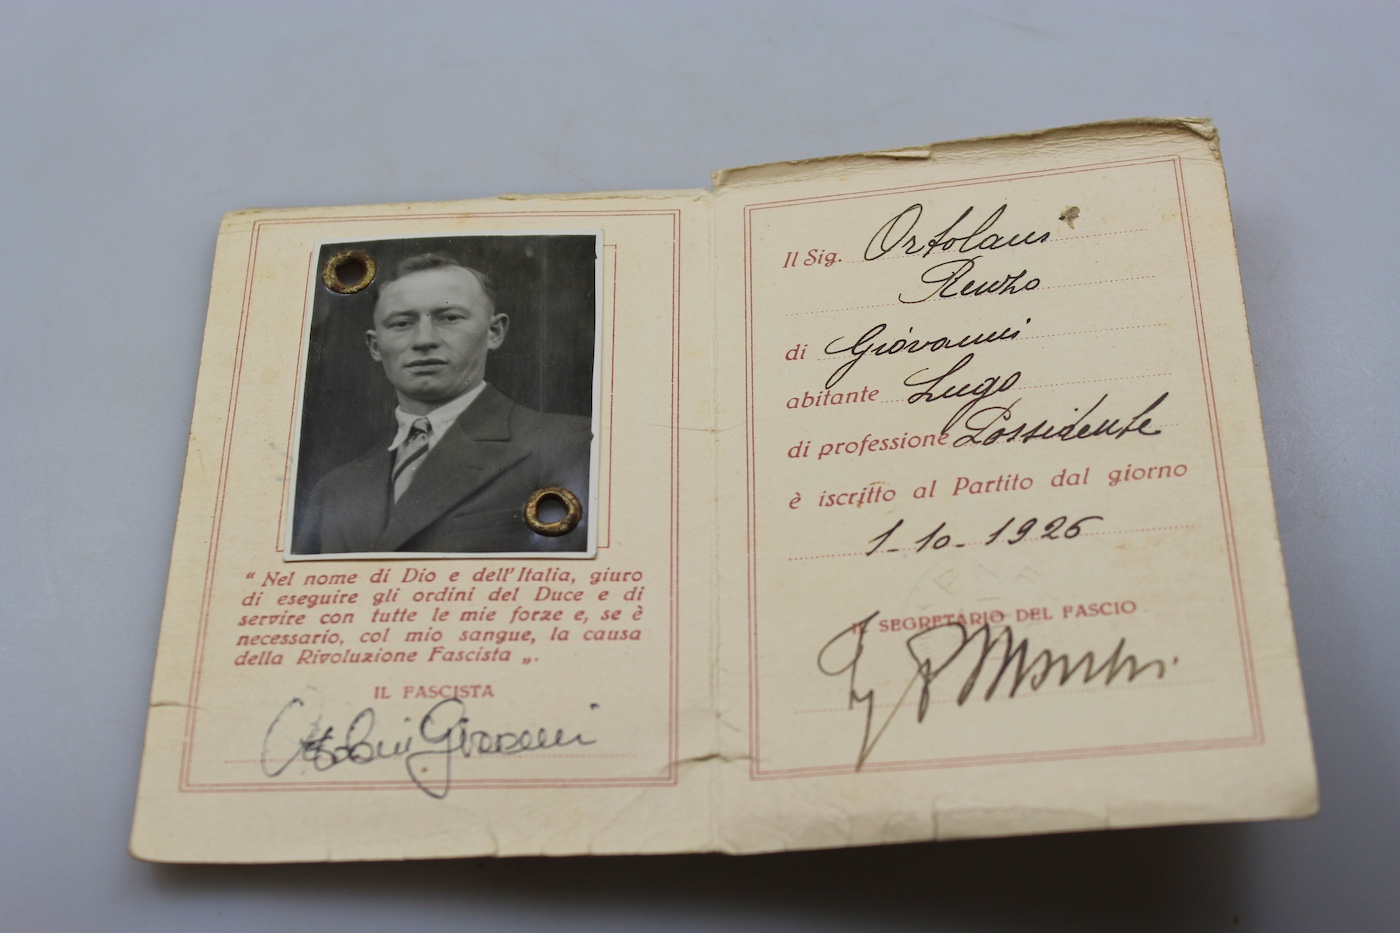 " Nel nome di Dio e dell'Italia, giuro
di eseguire gli ordini del Duce e di
servire con tutte le mie forze e, se è
necessario, col mio sangue, la causa
della Rivoluzione Fascista „.
IL FASCISTA
Ortolani Giovanni
Il Sig. Ortolani
Renzo
di Giovanni
abitante Lugo
di professione Possidente
è iscritto al Partito dal giorno
1-10-1926
IL SEGRETARIO DEL FASCIO